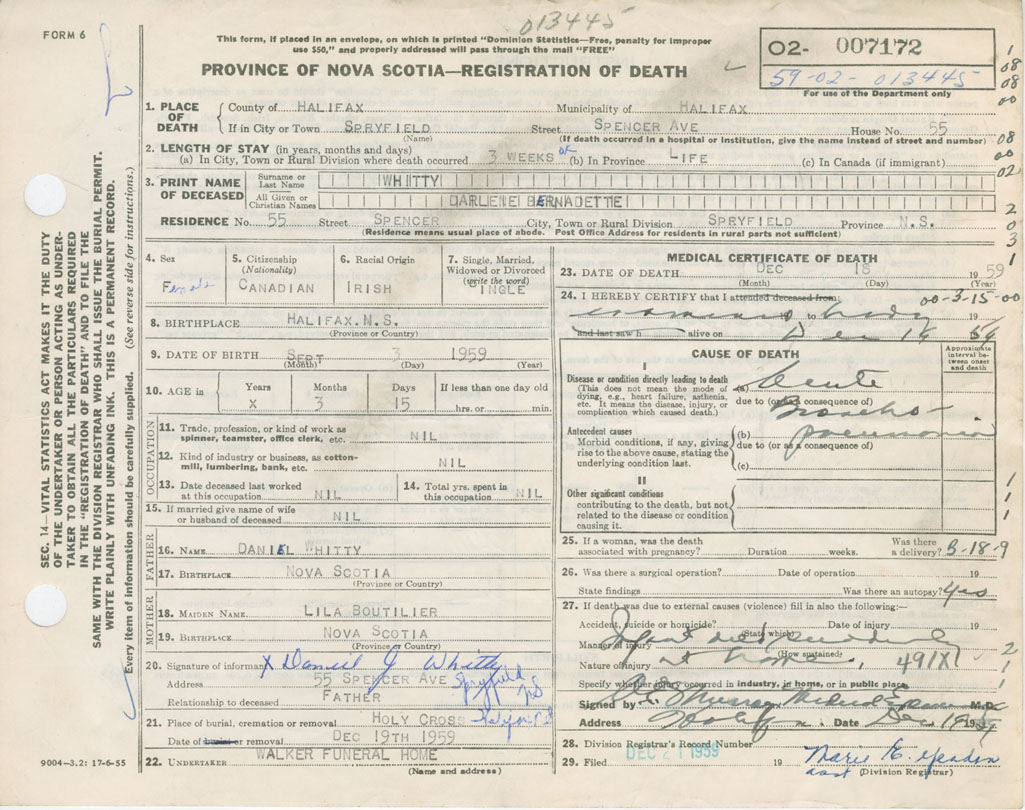 013445
FORM 6
This form, if placed in an envelope, on which is printed "Dominion Statistics—Free, penalty for improper
use $50," and properly addressed will pass through the mail "FREE"
PROVINCE OF NOVA SCOTIA—REGISTRATION OF DEATH
02- 007172
59-02-013445
For use of the Department only
1. PLACE OF DEATH County of HALIFAX Municipality of HALIFAX
If in City or Town SPRYFIELD Street SPENCER AVE House No. 55
(Name) (If death occurred in a hospital or institution, give the name instead of street and number)
2. LENGTH OF STAY (in years, months and days)
(a) In City, Town or Rural Division where death occurred 3 WEEKS (b) In Province LIFE (c) In Canada (if immigrant)
3. PRINT NAME OF DECEASED Surname or Last Name WHITTY
All Given or Christian Names DARLENE BERNADETTE
RESIDENCE No. 55 Street SPENCER City, Town or Rural Division SPRYFIELD Province N.S.
(Residence means usual place of abode. Post Office Address for residents in rural parts not sufficient)
4. Sex Female
5. Citizenship (Nationality) CANADIAN
6. Racial Origin IRISH
7. Single, Married, Widowed or Divorced (write the word) INGLE
8. BIRTHPLACE HALIFAX.N.S.
(Province or Country)
9. DATE OF BIRTH SEPT 3 1959
(Month) (Day) (Year)
10. AGE in Years Months Days If less than one day old
X 3 15 hrs. or min.
OCCUPATION
11. Trade, profession, or kind of work as spinner, teamster, office clerk, etc. NIL
12. Kind of industry or business, as cotton-mill, lumbering, bank, etc. NIL
13. Date deceased last worked at this occupation NIL
14. Total yrs. spent in this occupation NIL
15. If married give name of wife or husband of deceased NIL
FATHER
16. NAME DANIEL WHITTY
17. BIRTHPLACE NOVA SCOTIA
(Province or Country)
MOTHER
18. MAIDEN NAME LILA BOUTILIER
19. BIRTHPLACE NOVA SCOTIA
(Province or Country)
20. Signature of informant X Daniel J Whitty
Address 55 SPENCER AVE Spryfield NS
Relationship to deceased FATHER
21. Place of burial, cremation or removal HOLY CROSS Halifax N.S
Date of burial or removal DEC 19TH 1959
22. UNDERTAKER WALKER FUNERAL HOME
(Name and address)
MEDICAL CERTIFICATE OF DEATH
23. DATE OF DEATH DEC 18 1959
(Month) (Day) (Year)
24. I HEREBY CERTIFY that I attended deceased from: 00-3-15-00
examined body to 19
and last saw h alive on Dec 19 59
CAUSE OF DEATH
Approximate interval between onset and death
I
Disease or condition directly leading to death (a) Acute
(This does not mean the mode of dying, e.g., heart failure, asthenia, etc. It means the disease, injury, or complication which caused death.)
due to (or as a consequence of)
Broncho-
Antecedent causes (b) pneumonia
Morbid conditions, if any, giving rise to the above cause, stating the underlying condition last.
due to (or as a consequence of)
(c)
II
Other significant conditions contributing to the death, but not related to the disease or condition causing it.
25. If a woman, was the death associated with pregnancy? Duration weeks. Was there a delivery? B-18-9
26. Was there a surgical operation? Date of operation 19
State findings Was there an autopsy? Yes
27. If death was due to external causes (violence) fill in also the following:—
Accident, suicide or homicide? Date of injury 19
(State which)
Manner of injury Infant died suddenly
(How sustained)
Nature of injury at home, 491X1
Specify whether injury occurred in industry, in home, or in public place
Signed by Murray Medical M.D.
Address Halifax Date Dec 19 1959
28. Division Registrar's Record Number
29. Filed DEC 21 1959 19 Marie E.
(Division Registrar)
9004-3.2: 17-6-55
SEC. 14—VITAL STATISTICS ACT MAKES IT THE DUTY
OF THE UNDERTAKER OR PERSON ACTING AS UNDER-
TAKER TO OBTAIN ALL THE PARTICULARS REQUIRED
IN THE "REGISTRATION OF DEATH" AND TO FILE THE
SAME WITH THE DIVISION REGISTRAR WHO SHALL ISSUE THE BURIAL PERMIT.
WRITE PLAINLY WITH UNFADING INK. THIS IS A PERMANENT RECORD.
Every item of information should be carefully supplied. (See reverse side for instructions.)
1
08
08
00
08
00
02
2
0
3
1
1
1
1
2
1
1